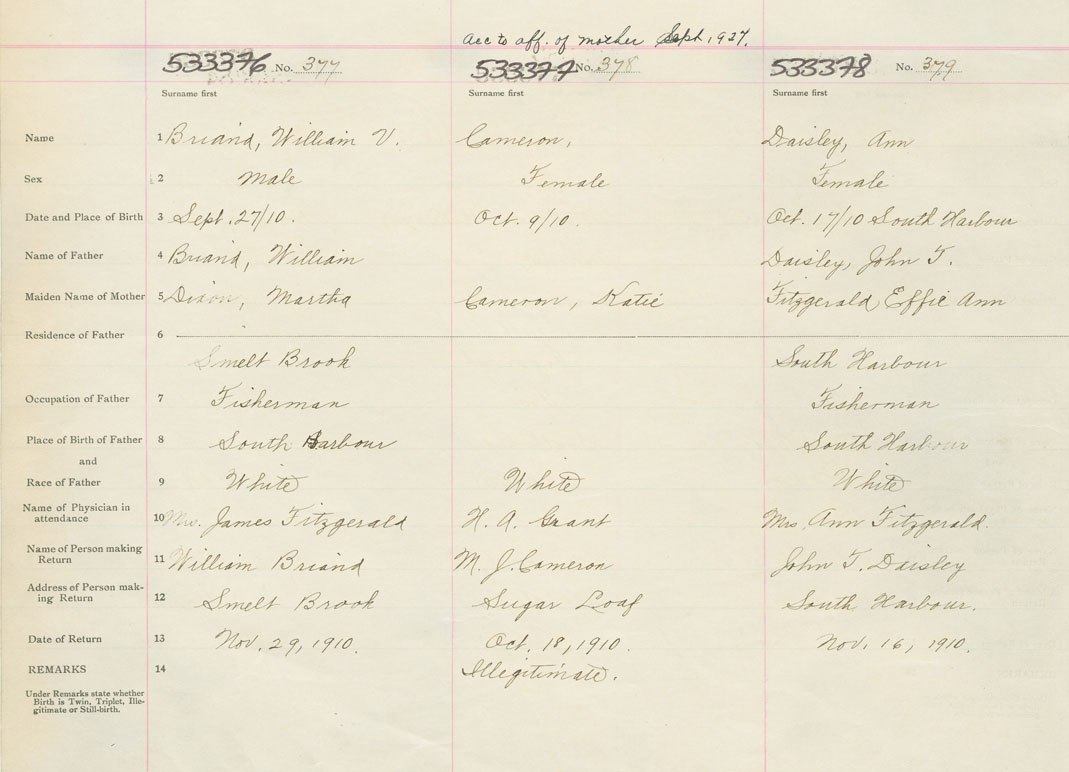 acc to aff. of mother Sept. 1927.
533376 No. 377 533377 No. 378 533378 No. 379
Surname first Surname first Surname first
Name 1 Briand, William V. Cameron, Daisley, Ann
Sex 2 Male Female Female
Date and Place of Birth 3 Sept. 27/10. Oct. 9/10. Oct. 17/10 South Harbour
Name of Father 4 Briand, William Daisley, John T.
Maiden Name of Mother 5 Dixon, Martha Cameron, Katie Fitzgerald Effie Ann
Residence of Father 6
Smelt Brook South Harbour
Occupation of Father 7 Fisherman Fisherman
Place of Birth of Father 8 South Harbour South Harbour
and
Race of Father 9 White White White
Name of Physician in
attendance 10 Mrs. James Fitzgerald H. A. Grant Mrs. Ann Fitzgerald.
Name of Person making
Return 11 William Briand M. J. Cameron John T. Daisley
Address of Person mak-
ing Return 12 Smelt Brook Sugar Loaf South Harbour.
Date of Return 13 Nov. 29, 1910. Oct. 18, 1910. Nov. 16, 1910.
REMARKS 14 Illegitimate.
Under Remarks state whether
Birth is Twin, Triplet, Ille-
gitimate or Still-birth.